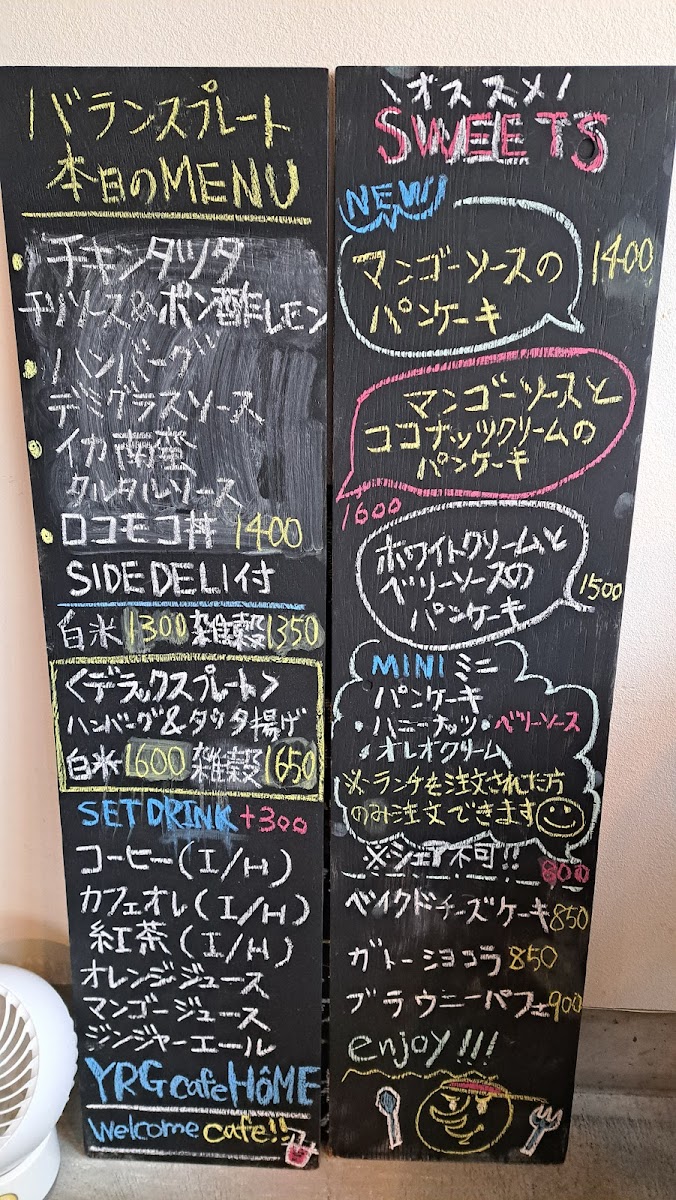 バランスプレート
本日のMENU
チキンタツタ
チリソース&ポン酢レモン
ハンバーグ
デミグラスソース
イカ南蛮
タルタルソース
ロコモコ丼 1400
SIDE DELI付
白米 1300 雑穀 1350
<デラックスプレート>
ハンバーグ&タツタ揚げ
白米 1600 雑穀 1650
SET DRINK +300
コーヒー(I/H)
カフェオレ(I/H)
紅茶(I/H)
オレンジジュース
マンゴージュース
ジンジャーエール
YRG cafe HÔME
Welcome cafe!!
\オススメ/
SWEETS
NEW
マンゴーソースの 1400
パンケーキ
マンゴーソースと
ココナッツクリームの
パンケーキ
1600
ホワイトクリームと
ベリーソースの 1500
パンケーキ
MINI ミニ
パンケーキ
・ハニーナッツ・ベリーソース
・オレオクリーム
※ランチを注文された方
のみ注文できます
※シェア不可!! 800
ベイクドチーズケーキ 850
ガトーショコラ 850
ブラウニーパフェ 900
enjoy!!!